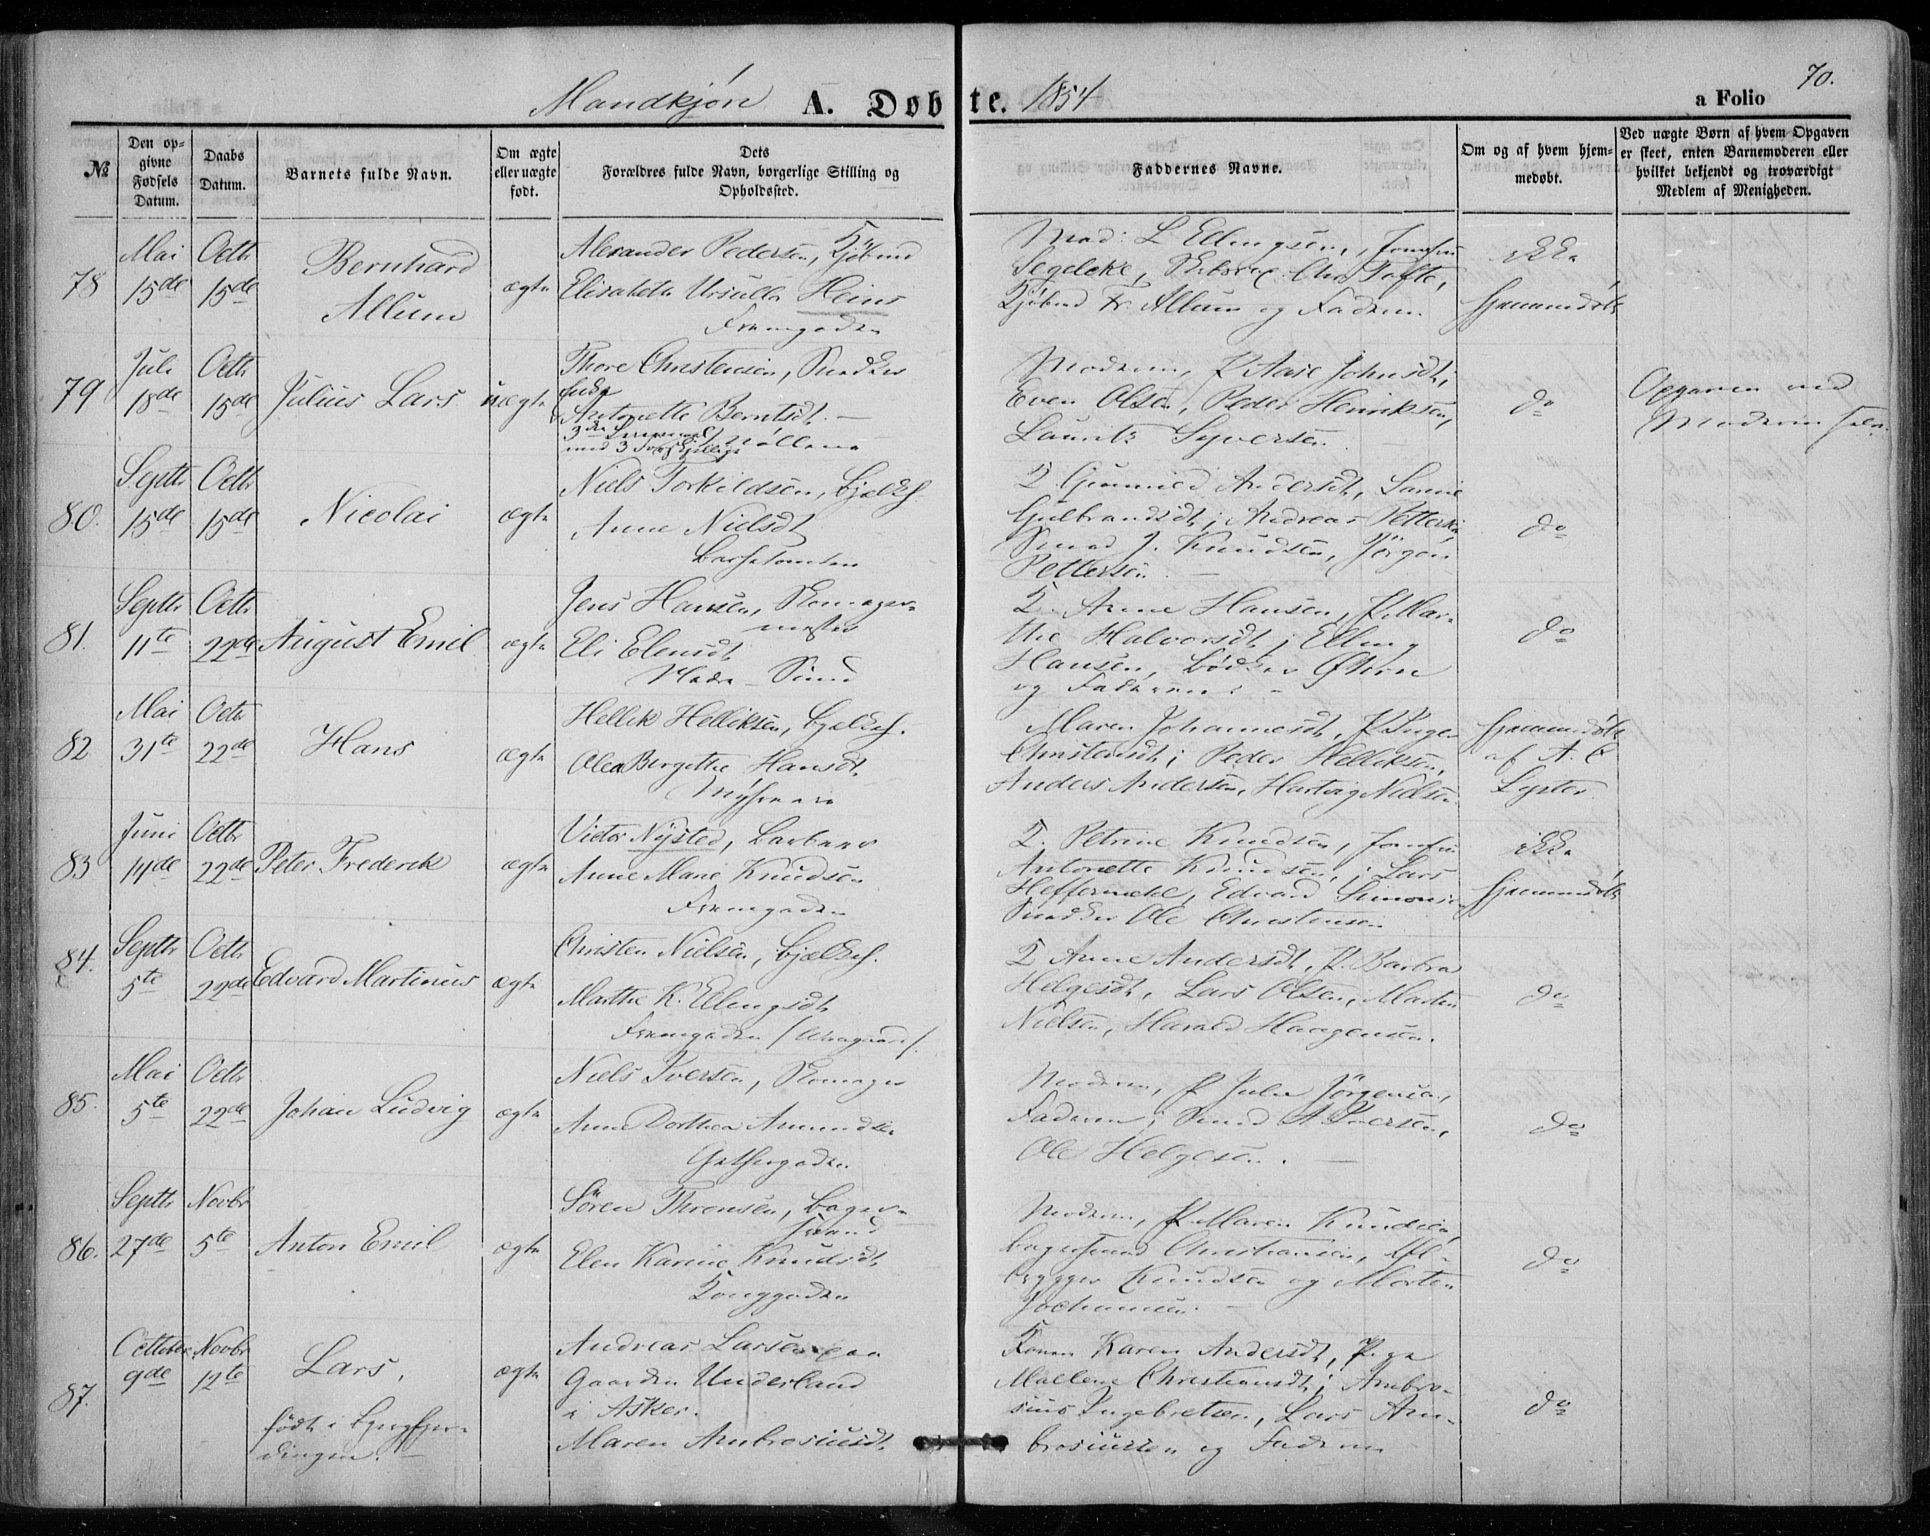 Mandkjøn A. Døbte. 1854 a Folio 70.
№
Den opgivne Fødsels Datum.
Daabs Datum.
Barnets fulde Navn.
Om ægte eller uægte født.
Dets Forældres fulde Navn, borgerlige Stilling og Opholdssted.
Faddernes Navne.
Om og af hvem hjemmedøbt.
Ved uægte Børn af hvem Opgaven er skeet, enten Barnemoderen eller hvilket bekjendt og troværdigt Medlem af Menigheden.
78
Mai 15de
Octb 15de
Bernhard
Allum
ægte
Alexander Pedersen, Kjøbmd
Elisabeth Ursulla Heins
Mad: L Ellingsen, Jomfru
Segelcke, Chrs Tofte,
Kjøbmd Fr. Allum og Faderen
ikke
hjemmedøbt
79
Juli 18de
Octb 15de
Julius Lars
uægte
Thore Christensen, Snedker
Antonette Berntsdt.
Moderen, P. Aase Johnsdt;
Even Olsen, Peder Henriksen,
Laurits Syversen
do
Opgaven ved
Moderen selv.
80.
Septbr 15de
Octb 15de
Nicolai
ægte
Niels Torkildsen, Bjælkh.
Anne Nielsdt
K. Gunnild Andersdt,
Gulbrandsdt; Andreas Pettersen,
Smed J. Knudsen, Jørgen
Pettersen.
do
81.
Septbr 11te
Octb 22de
August Emil
ægte
Jens Hansen, Skomager-
mester
Eli Elensdt
Nedre Sund
K. Anne Hansen, P. Mar-
the Halvorsdt; Elling
Hansen, Bødker
og Faderen.
do
82
Mai 31te
Octb 22de
Hans
ægte
Hellik Helliksen, Bjælkh.
Olea Bergithe Hansdt.
Maren Johannesdt, P. Inger
Christensdt; Peder Helliksen,
Anders Andersen, Hartvig Nielsen
hjemmedøbt
af A. C
83
Juni 14de
Octb 22de
Peter Frederik
ægte
Victor Nysted, Barbeer
Anne Marie Knudsen
K. Petrine Knudsen, Jomfru
Antonette Knudsen; Lars
Heffermehl, Edvard Simonsen
Snedker Ole Christensen
ikke
hjemmedøbt
84.
Septbr 5te
Octb 22de
Edvard Martinus
ægte
Christen Nielsen, Bjælkh.
Marthe K. Ellingsdt
K. Anne Andersdt, P. Barbra
Helgesdt, Lars Olsen, Morten
Nielsen, Harald Haagensen.
do
85.
Mai 5te
Octb 22de
Johan Ludvig
ægte
Niels Iversen, Skomager
Anne Dorthea Amundsen
Moderen, P. Julie Jørgensen,
Faderen; Smed A. Iversen,
Ole Helgesen.
do
86.
Septbr 27de
Novbr 5te
Anton Emil
ægte
Søren Thronsen, Bager-
svend
Elen Karine Knudsdt
Konggaden
Moderen, P. Maren Knudsen,
Bagersvend Christiansen, Øl-
brygger Knudsen og Morten
Jochumsen.
do
87.
October 9de
Novbr 12te
Lars,
født i Lyngfjer-
dingen.
ægte
Andreas Larsen paa
Gaarden Underland
i Asker.
Maren Ambrosiusdt.
Konen Karen Andersdt, Pige
Mallene Christiansdt; Ambro-
sius Ingebretsen, Lars Am-
brosiussen og Faderen
do